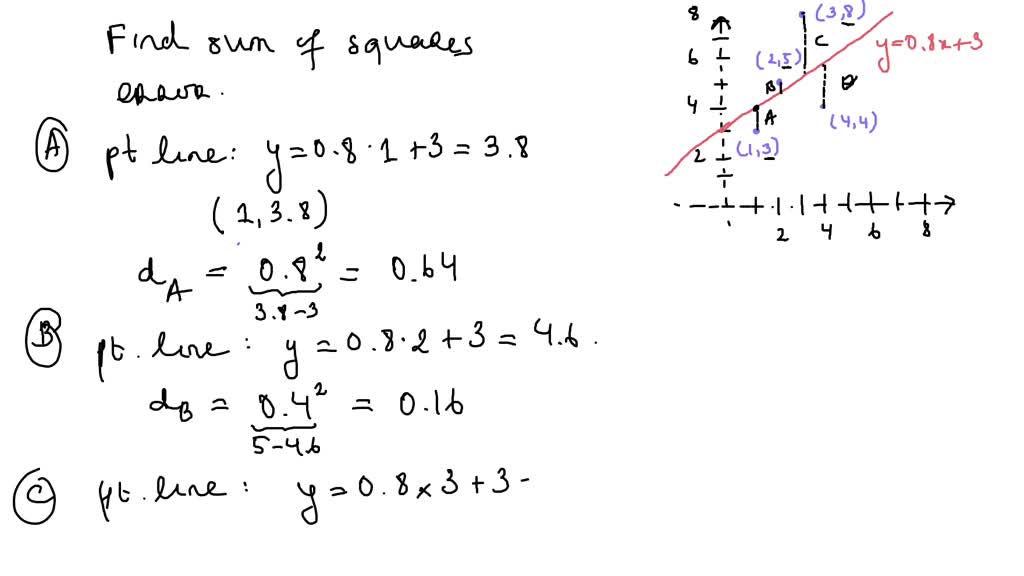 Find sum of squares
error.
A pt line: y = 0.8 · 1 + 3 = 3.8
(1, 3.8)
d_A = 0.8² = 0.64
3.8 - 3
B pt. line: y = 0.8 · 2 + 3 = 4.6.
d_B = 0.4² = 0.16
5 - 4.6
C pt. line: y = 0.8 × 3 + 3 -
8
(3,8)
C
y=0.8x+3
6
(2,5)
B
D
4
A
(4,4)
(1,3)
2
2 4 6 8